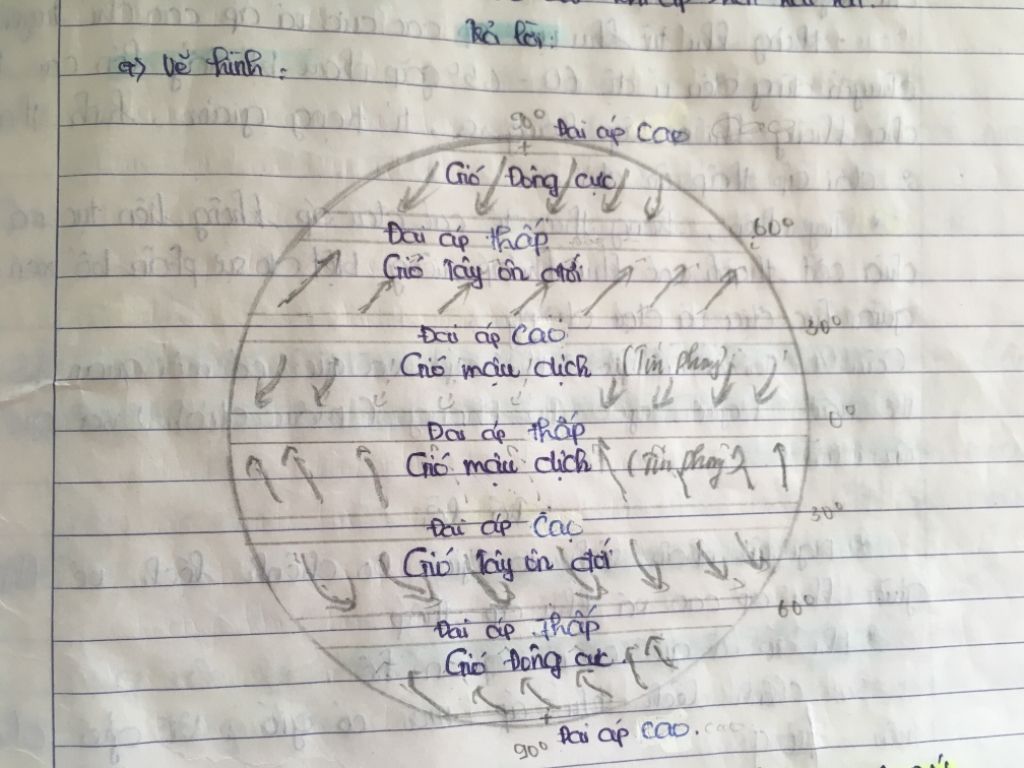 Trả lời:
a) Vẽ hình:
90° Đai áp cao
Gió Đông cực
60°
Đai áp thấp
Gió Tây ôn đới
30°
Đai áp cao
Gió mậu dịch (Tín phong)
0°
Đai áp thấp
Gió mậu dịch (Tín phong)
30°
Đai áp cao
Gió Tây ôn đới
60°
Đai áp thấp
Gió Đông cực
90° Đai áp cao.